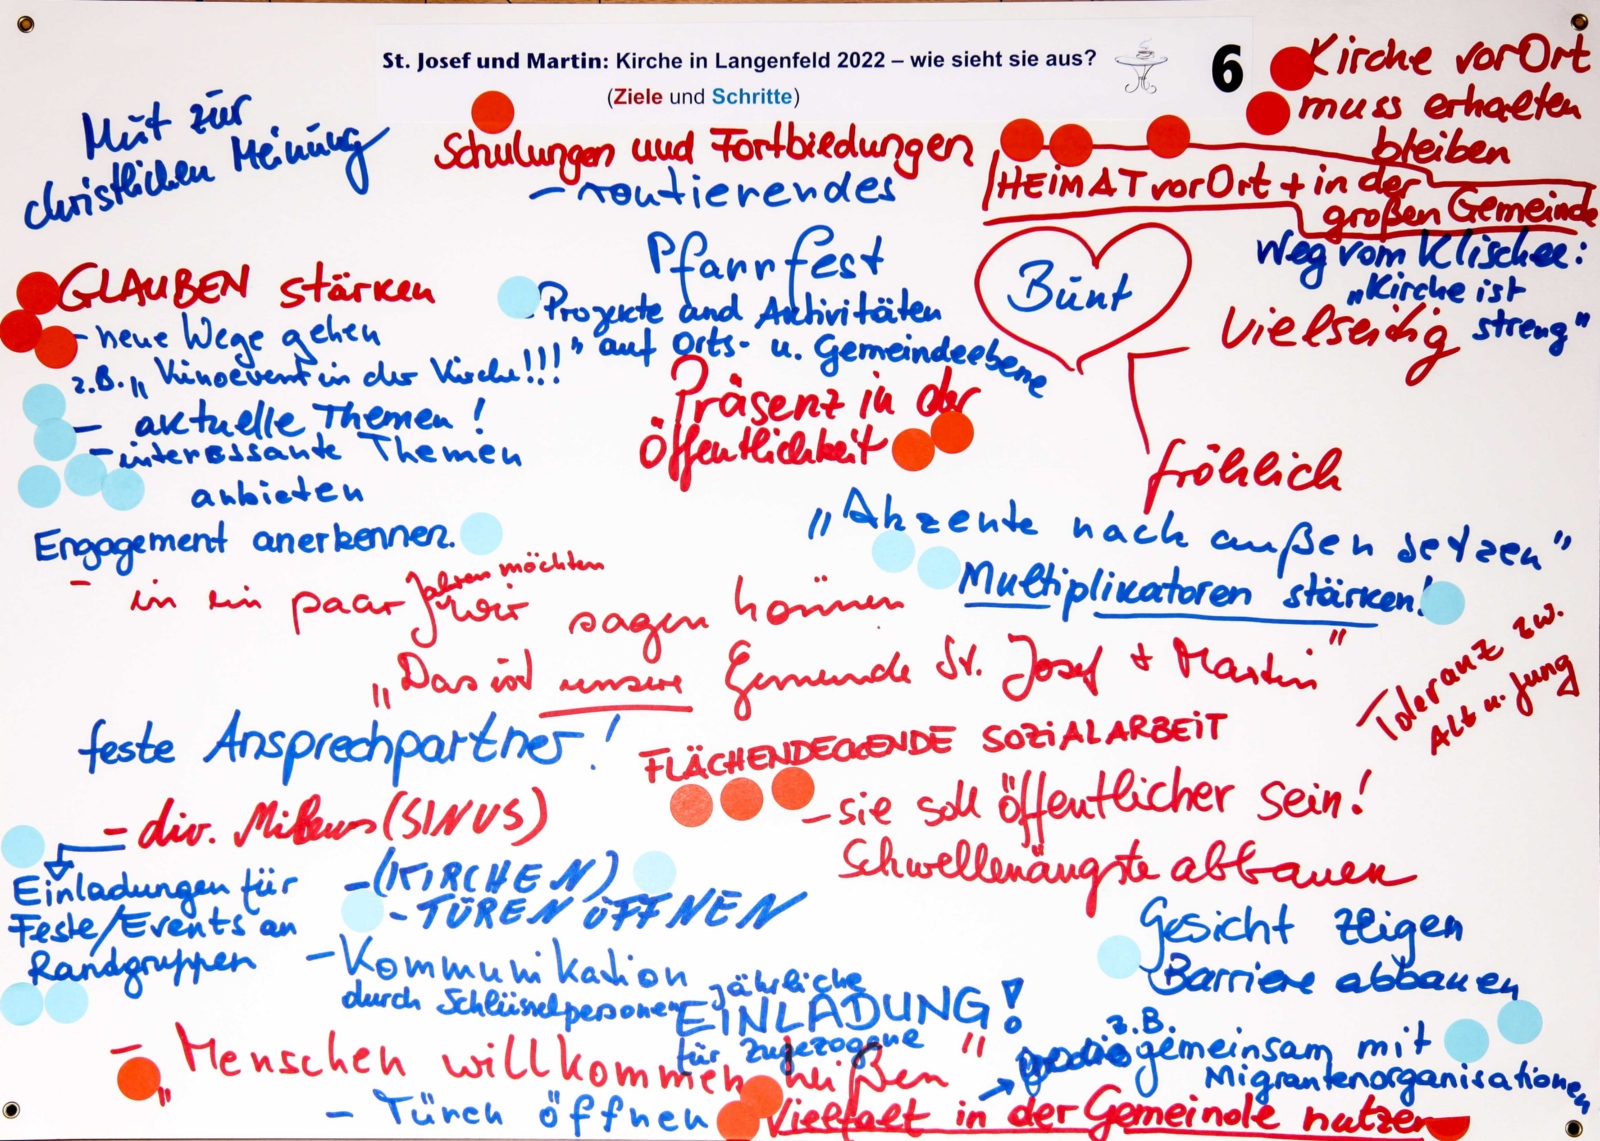 St. Josef und Martin: Kirche in Langenfeld 2022 – wie sieht sie aus?
(Ziele und Schritte)
6
Kirche vor Ort
muss erhalten
bleiben
Mut zur
christlichen Meinung
Schulungen und Fortbildungen
HEIMAT vor Ort + in der
großen Gemeinde
- routierendes
Pfarrfest
Bunt
Weg vom Klischee:
"Kirche ist
streng"
vielseitig
fröhlich
GLAUBEN stärken
- neue Wege gehen
z.B. „Kinoevent in der Kirche!!!"
- aktuelle Themen!
- interessante Themen
anbieten
Projekte und Aktivitäten
auf Orts- u. Gemeindeebene
Präsenz in der
Öffentlichkeit
Engagement anerkennen.
„Akzente nach außen setzen"
Multiplikatoren stärken!
- in ein paar Jahren möchten
wir sagen können
„Das ist unsere Gemeinde St. Josef + Martin"
Toleranz zw.
Alt u. Jung
feste Ansprechpartner!
FLÄCHENDECKENDE SOZIALARBEIT
- sie soll öffentlicher sein!
Schwellenängste abbauen
- div. Milieus (SINUS)
Einladungen für
Feste/Events an
Randgruppen
- (KIRCHEN)
- TÜREN ÖFFNEN
- Kommunikation
durch Schlüsselpersonen
jährliche
EINLADUNG!
für Zugezogene
Gesicht zeigen
Barriere abbauen
z.B.
gemeinsam mit
Migrantenorganisationen
- „Menschen willkommen heißen"
- Türen öffnen
Vielfalt in der Gemeinde nutzen